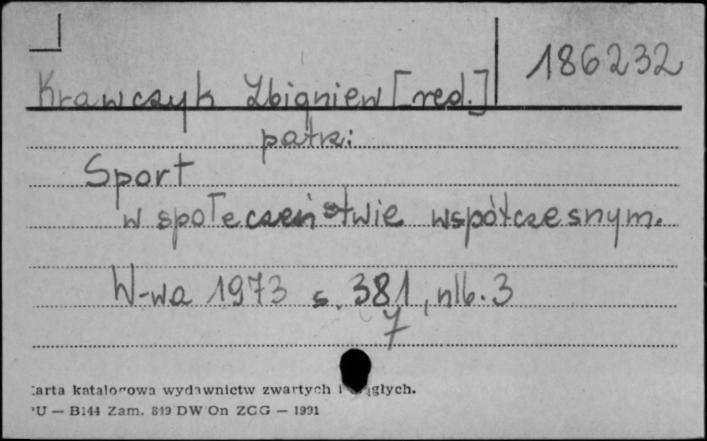 186232
Krawczyk Zbigniew [red.]
patrz:
Sport
w społeczeństwie współczesnym.
W-wa 1973 s. 381, nlb. 3
7
karta katalogowa wydawnictw zwartych i ciągłych.
PU — B144 Zam. 819 DW On ZCG — 1991